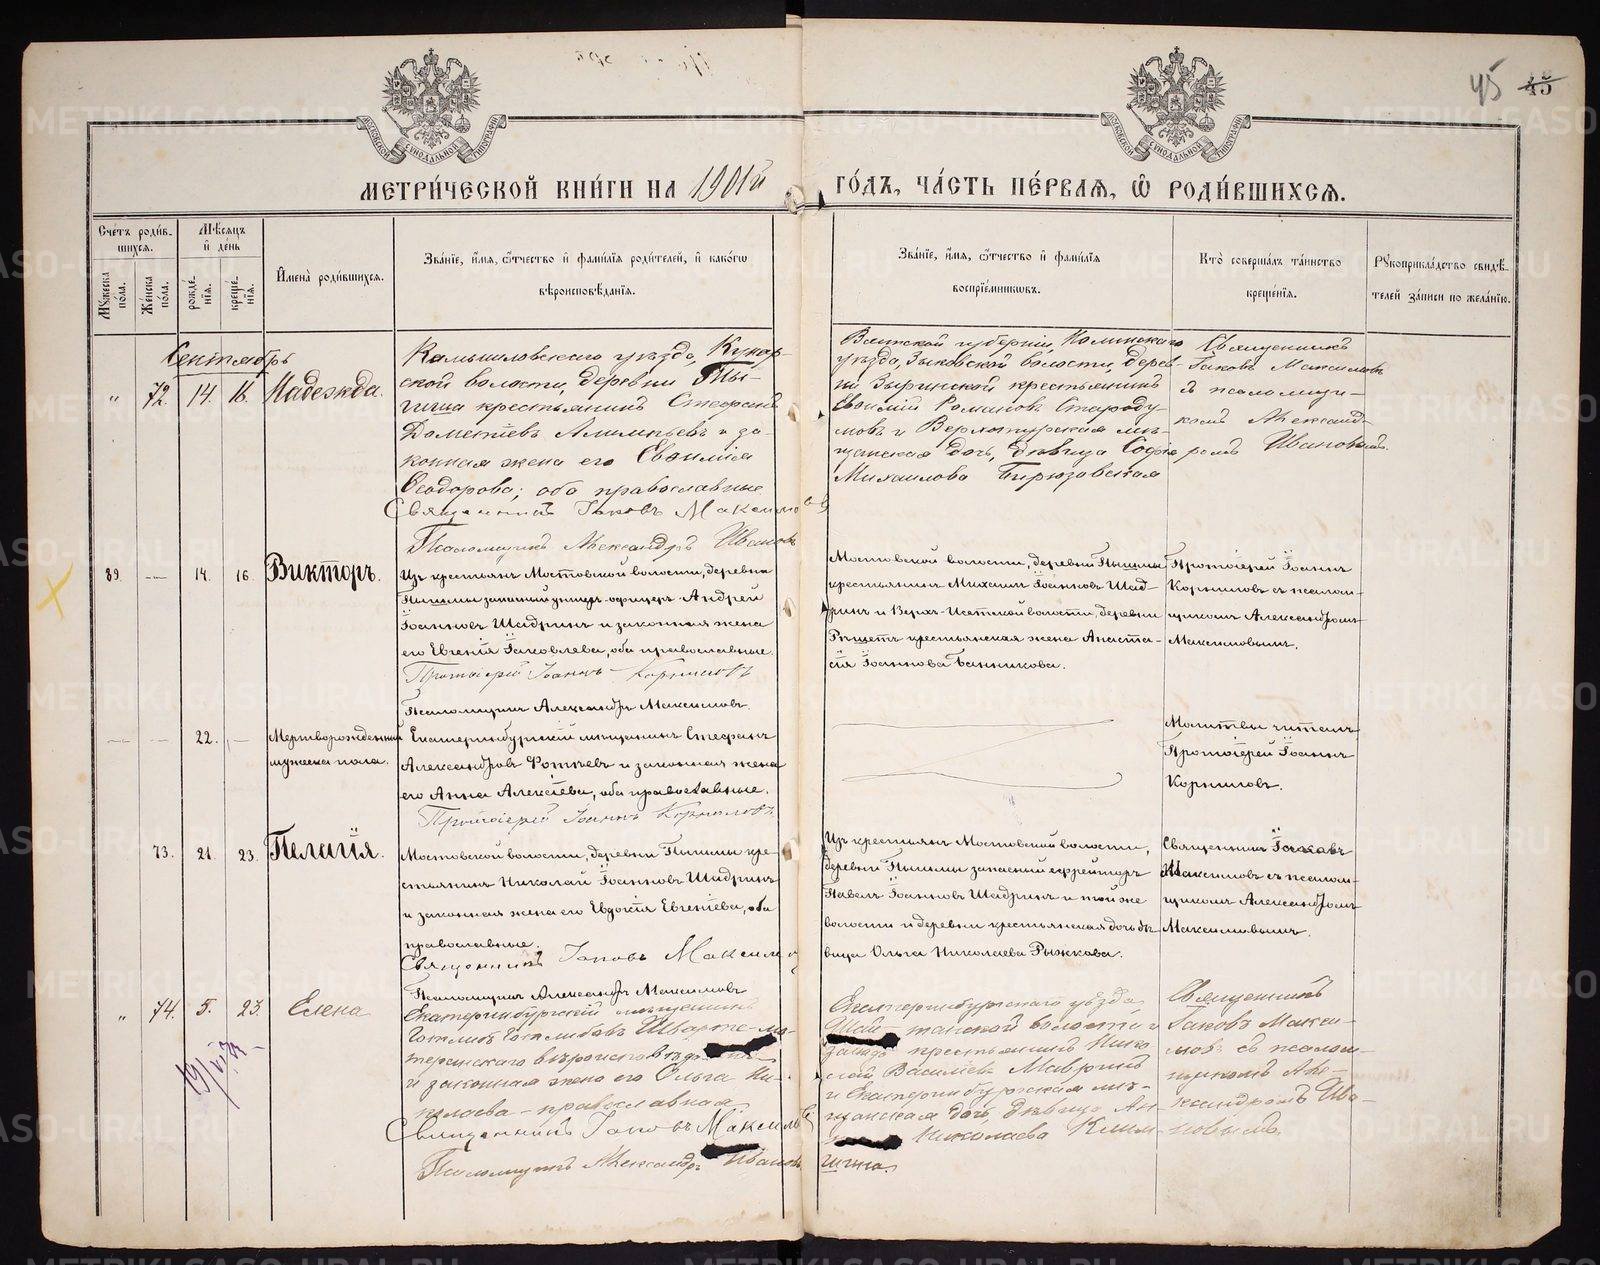 45 45
МОСКОВСКОЙ СѴНОДАЛЬНОЙ ТИПОГРАФІИ
МОСКОВСКОЙ СѴНОДАЛЬНОЙ ТИПОГРАФІИ
МЕТРИ́ЧЕСКОЙ КНИ́ГИ НА 1901й ГО́ДЪ, ЧА́СТЬ ПЕ́РВАѦ, Ѽ РОДИ́ВШИХСѦ.
Сче́тъ роди́в-
шихсѧ.
Мꙋ́жеска по́ла.
Же́нска по́ла.
Мѣ́сѧцъ
и҆ де́нь
рожде́-нїѧ.
креще́-нїѧ.
И҆мена̀ роди́вшихсѧ.
Зва́нїе, и҆́мѧ, ѻ҆́тчество и҆ фами́лїѧ роди́телей, и҆ како́гѡ
вѣроисповѣ́данїѧ.
Зва́нїе, и҆́мѧ, ѻ҆́тчество и҆ фами́лїѧ
воспрїе́мникѡвъ.
Кто̀ соверша́лъ та́инство
креще́нїѧ.
Рꙋкоприкла́дство свидѣ́-
телей за́писи по жела́нїю.
Сентябрь
" 72. 14. 16. Надежда.
Камышловскаго уѣзда, Кунар-
ской волости, деревни
крестьянинъ Стефанъ
Дометіевъ и за-
конная жена его Евѳимія
Ѳеодорова; оба православные.
Священникъ Іаковъ Максимовъ
Псаломщикъ Александръ Ивановъ
Вятской губерніи,
уѣзда, Зыковской волости, дерев-
ни Зыринской крестьянинъ
Евѳимій Романовъ Староду-
мовъ и Верхотурская мѣ-
щанская дочь, дѣвица Софія
Михаилова Бирюзовская
Священникъ
Іаковъ Максимовъ
съ псаломщи-
комъ Александ-
ромъ Ивановымъ.
89. — 14. 16. Викторъ.
Изъ крестьянъ Мостовской волости, деревни
Пышмы запасный унтеръ-офицеръ Андрей
Іоанновъ Шадринъ и законная жена
его Евгенія Іаковлева, оба православные.
Протоіерей Іоаннъ Корниловъ
Псаломщикъ Александръ Максимовъ.
Мостовской волости, деревни Пышмы
крестьянинъ Михаилъ Іоанновъ Шад-
ринъ и Верхъ-Исетской волости, деревни
Рѣшетъ крестьянская жена Анаста-
сія Іоаннова Банникова.
Протоіерей Іоаннъ
Корниловъ съ псалом-
щикомъ Александромъ
Максимовымъ.
— — 22. — Мертворожденный
мужеска пола.
Екатеринбургскій мѣщанинъ Стефанъ
Александровъ и законная жена
его Анна Алексіева, оба православные.
Протоіерей Іоаннъ Корниловъ
Молитвы читалъ
Протоіерей Іоаннъ
Корниловъ.
73. 21. 23. Пелагія.
Мостовской волости, деревни Пышмы кре-
стьянинъ Николай Іоанновъ Шадринъ
и законная жена его Евдокія Евгеніева, оба
православные.
Священникъ Іаковъ Максимовъ
Псаломщикъ Александръ Максимовъ
Изъ крестьянъ Мостовской волости,
деревни Пышмы запасный ефрейторъ
Павелъ Іоанновъ Шадринъ и той же
волости и деревни крестьянская дочь дѣ-
вица Ольга Николаева Рыжкова.
Священникъ Іаковъ
Максимовъ съ псалом-
щикомъ Александромъ
Максимовымъ.
" 74. 5. 23. Елена
Екатеринбургскій мѣщанинъ
Готлибъ Готлибовъ Шварте-лю-
теранскаго вѣроисповѣданія
и законная жена его Ольга Ни-
колаева - православная
Священникъ Іаковъ Максимовъ
Псаломщикъ Александръ Ивановъ
Екатеринбургскаго уѣзда,
Шай-танской волости и
завода крестьянинъ Нико-
лай Васильевъ Мавринъ
и Екатеринбургская мѣ-
щанская дочь, дѣвица Ан-
Николаева Клим-
шина.
Священникъ
Іаковъ Макси-
мовъ съ псалом-
щикомъ Але-
ксандромъ Ива-
новымъ.
METRIKI.GASO-URAL.RU